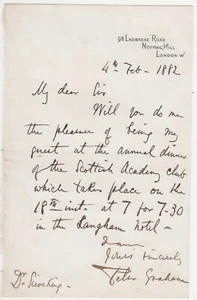 98 LADBROKE ROAD
NOTTING HILL
LONDON W
4th Feb - 1882
My dear Sir
Will you do me
the pleasure of being my
guest at the annual dinner
of the Scottish Academy club
which takes place on the
18th inst. at 7 for 7-30
in the Langham Hotel -
I am
Yours sincerely
Peter Graham
Dr.